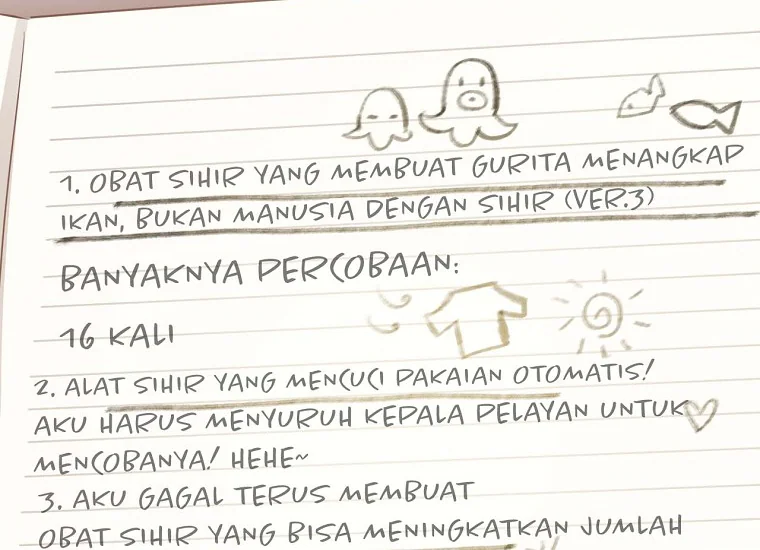 1. OBAT SIHIR YANG MEMBUAT GURITA MENANGKAP
IKAN, BUKAN MANUSIA DENGAN SIHIR (VER.3)
BANYAKNYA PERCOBAAN:
16 KALI
2. ALAT SIHIR YANG MENCUCI PAKAIAN OTOMATIS!
AKU HARUS MENYURUH KEPALA PELAYAN UNTUK
MENCOBANYA! HEHE~
3. AKU GAGAL TERUS MEMBUAT
OBAT SIHIR YANG BISA MENINGKATKAN JUMLAH